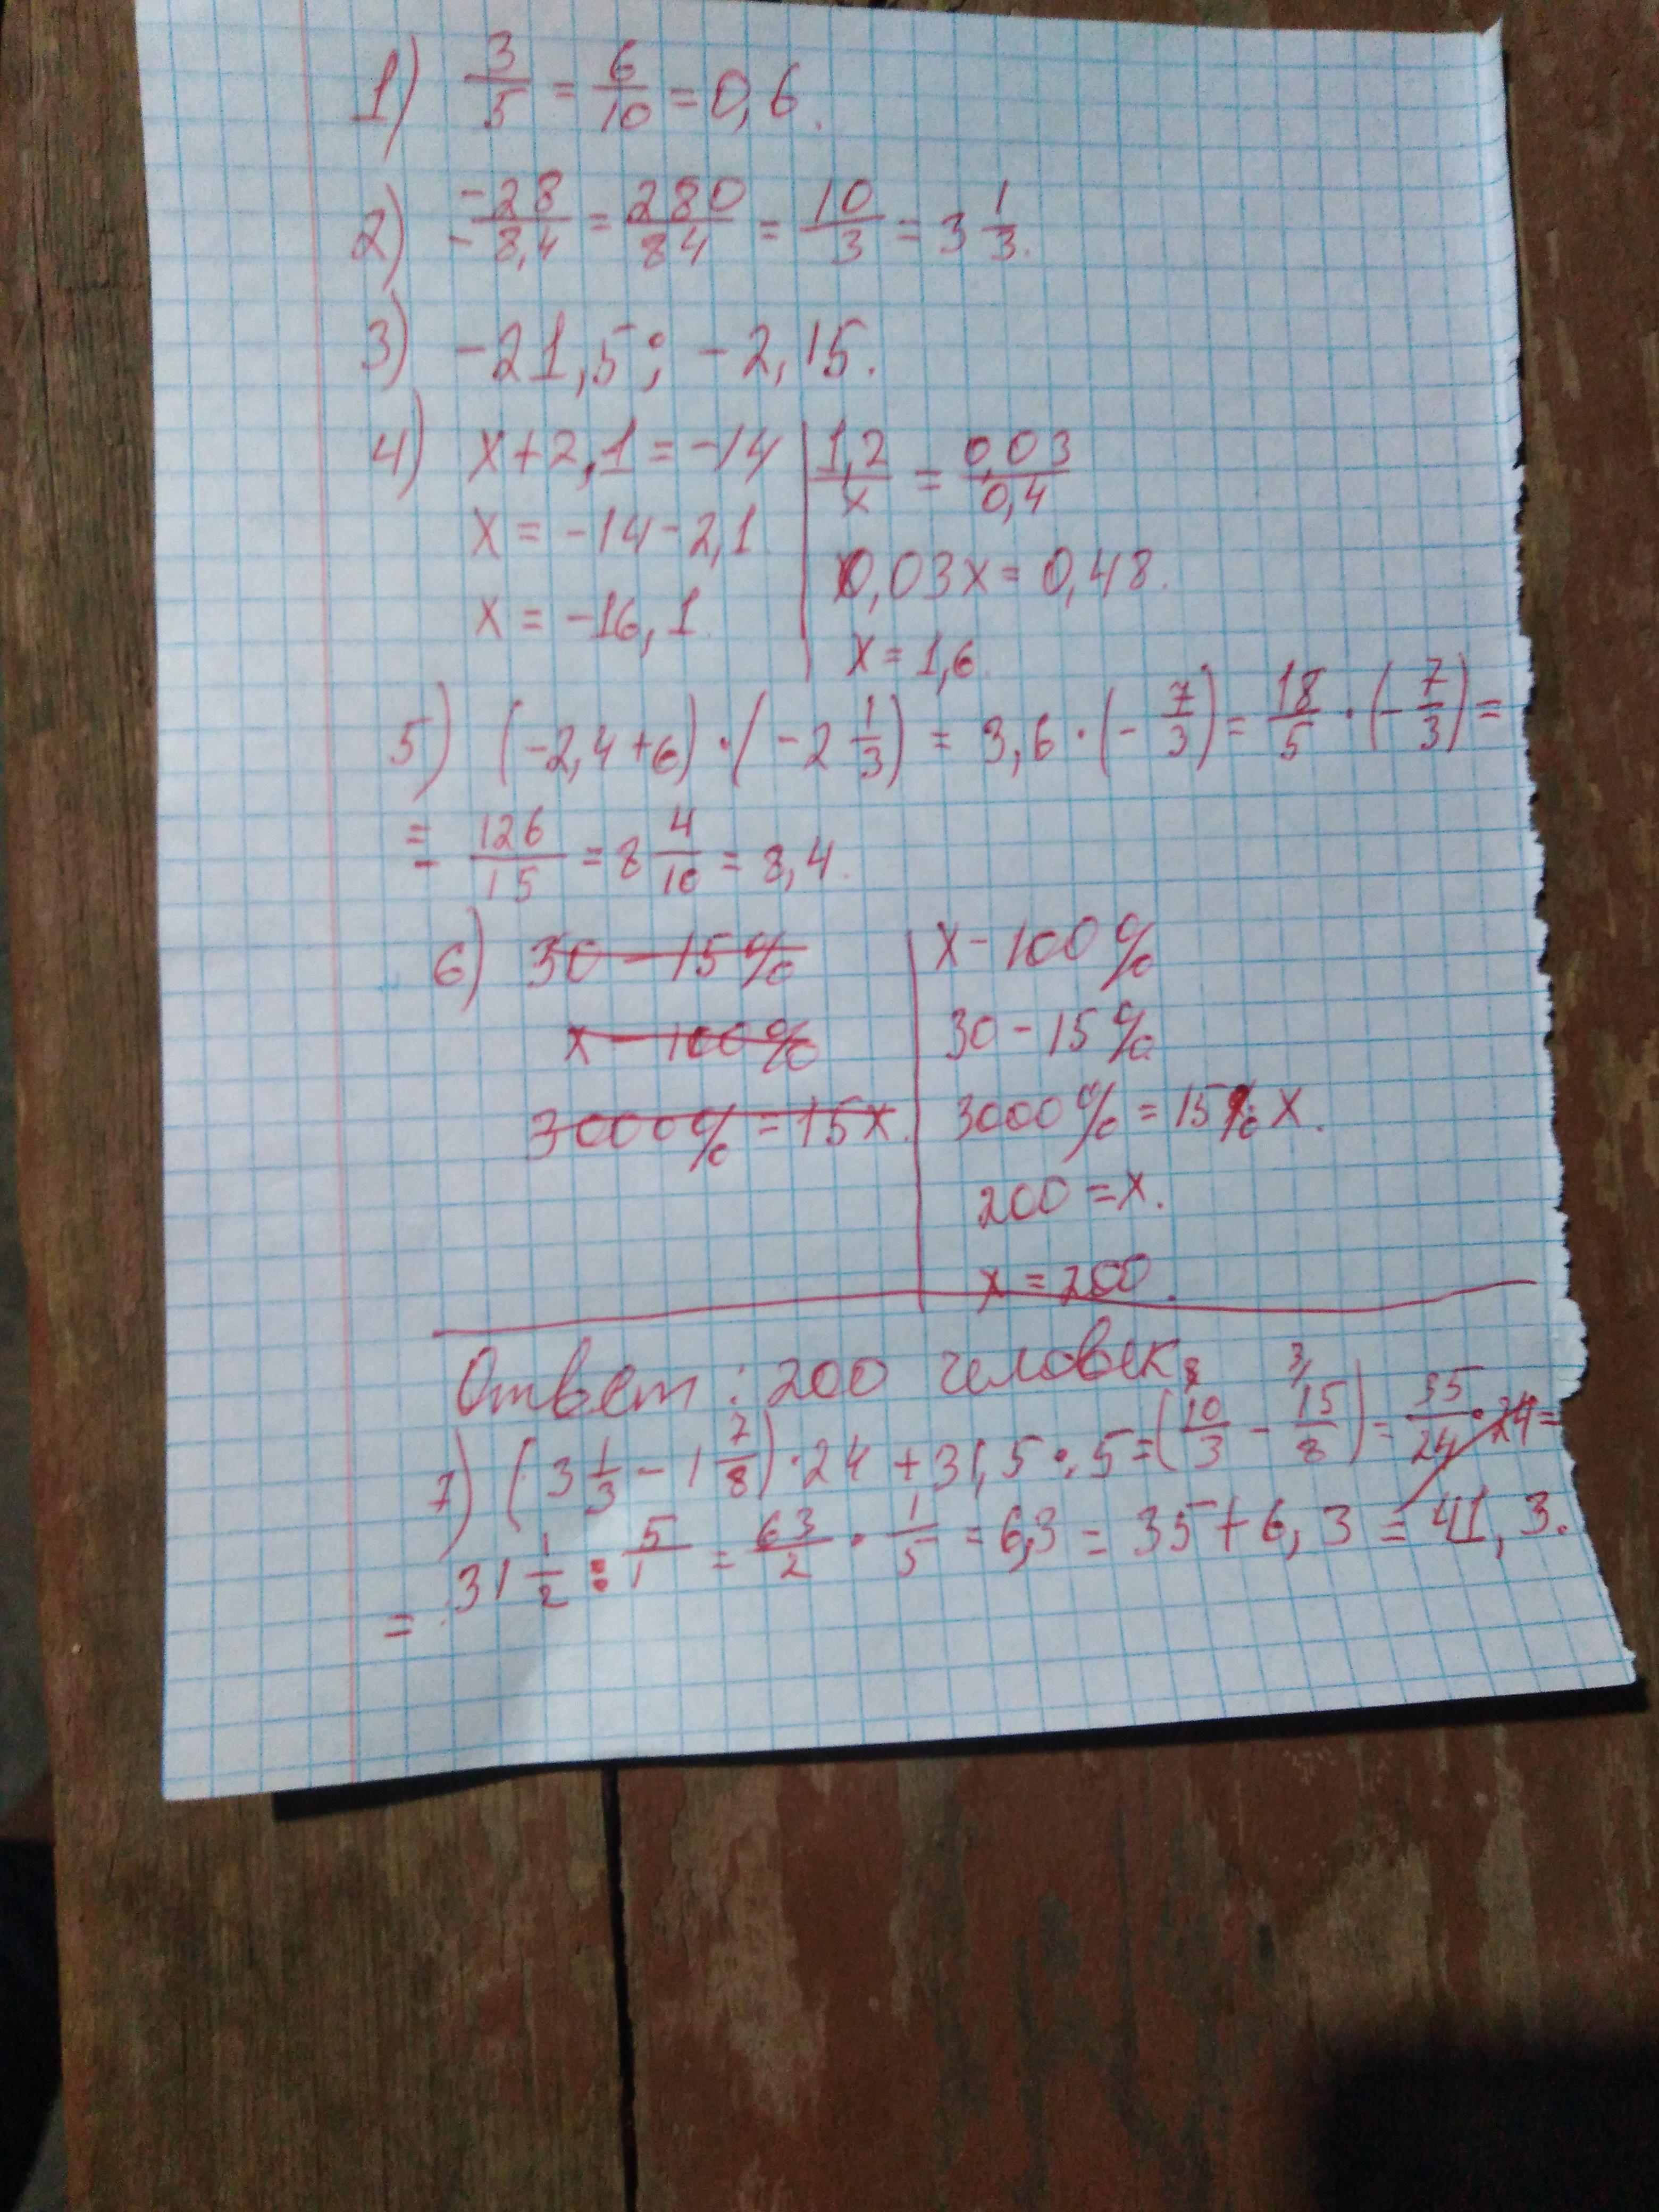 1) 3/5 = 6/10 = 0,6.
2) -28/-8,4 = 280/84 = 10/3 = 3 1/3.
3) -21,5; -2,15.
4) x+2,1=-14
x = -14-2,1
x = -16,1.
1,2/x = 0,03/0,4
0,03x = 0,48.
x = 1,6.
5) (-2,4+6)·(-2 1/3) = 3,6·(-7/3) = 18/5·(-7/3) =
= -126/15 = 8 4/10 = 8,4.
6) 30 - 15%
x - 100%
3000% = 15x.
x - 100%
30 - 15%
3000% = 15% x.
200 = x.
x = 200.
Ответ: 200 человек.
7) (3 1/3 - 1 7/8)·24 + 31,5:5 = (10/3 - 15/8) = 35/24·24 =
= 31 1/2 : 5/1 = 63/2 · 1/5 = 6,3 = 35+6,3 = 41,3.